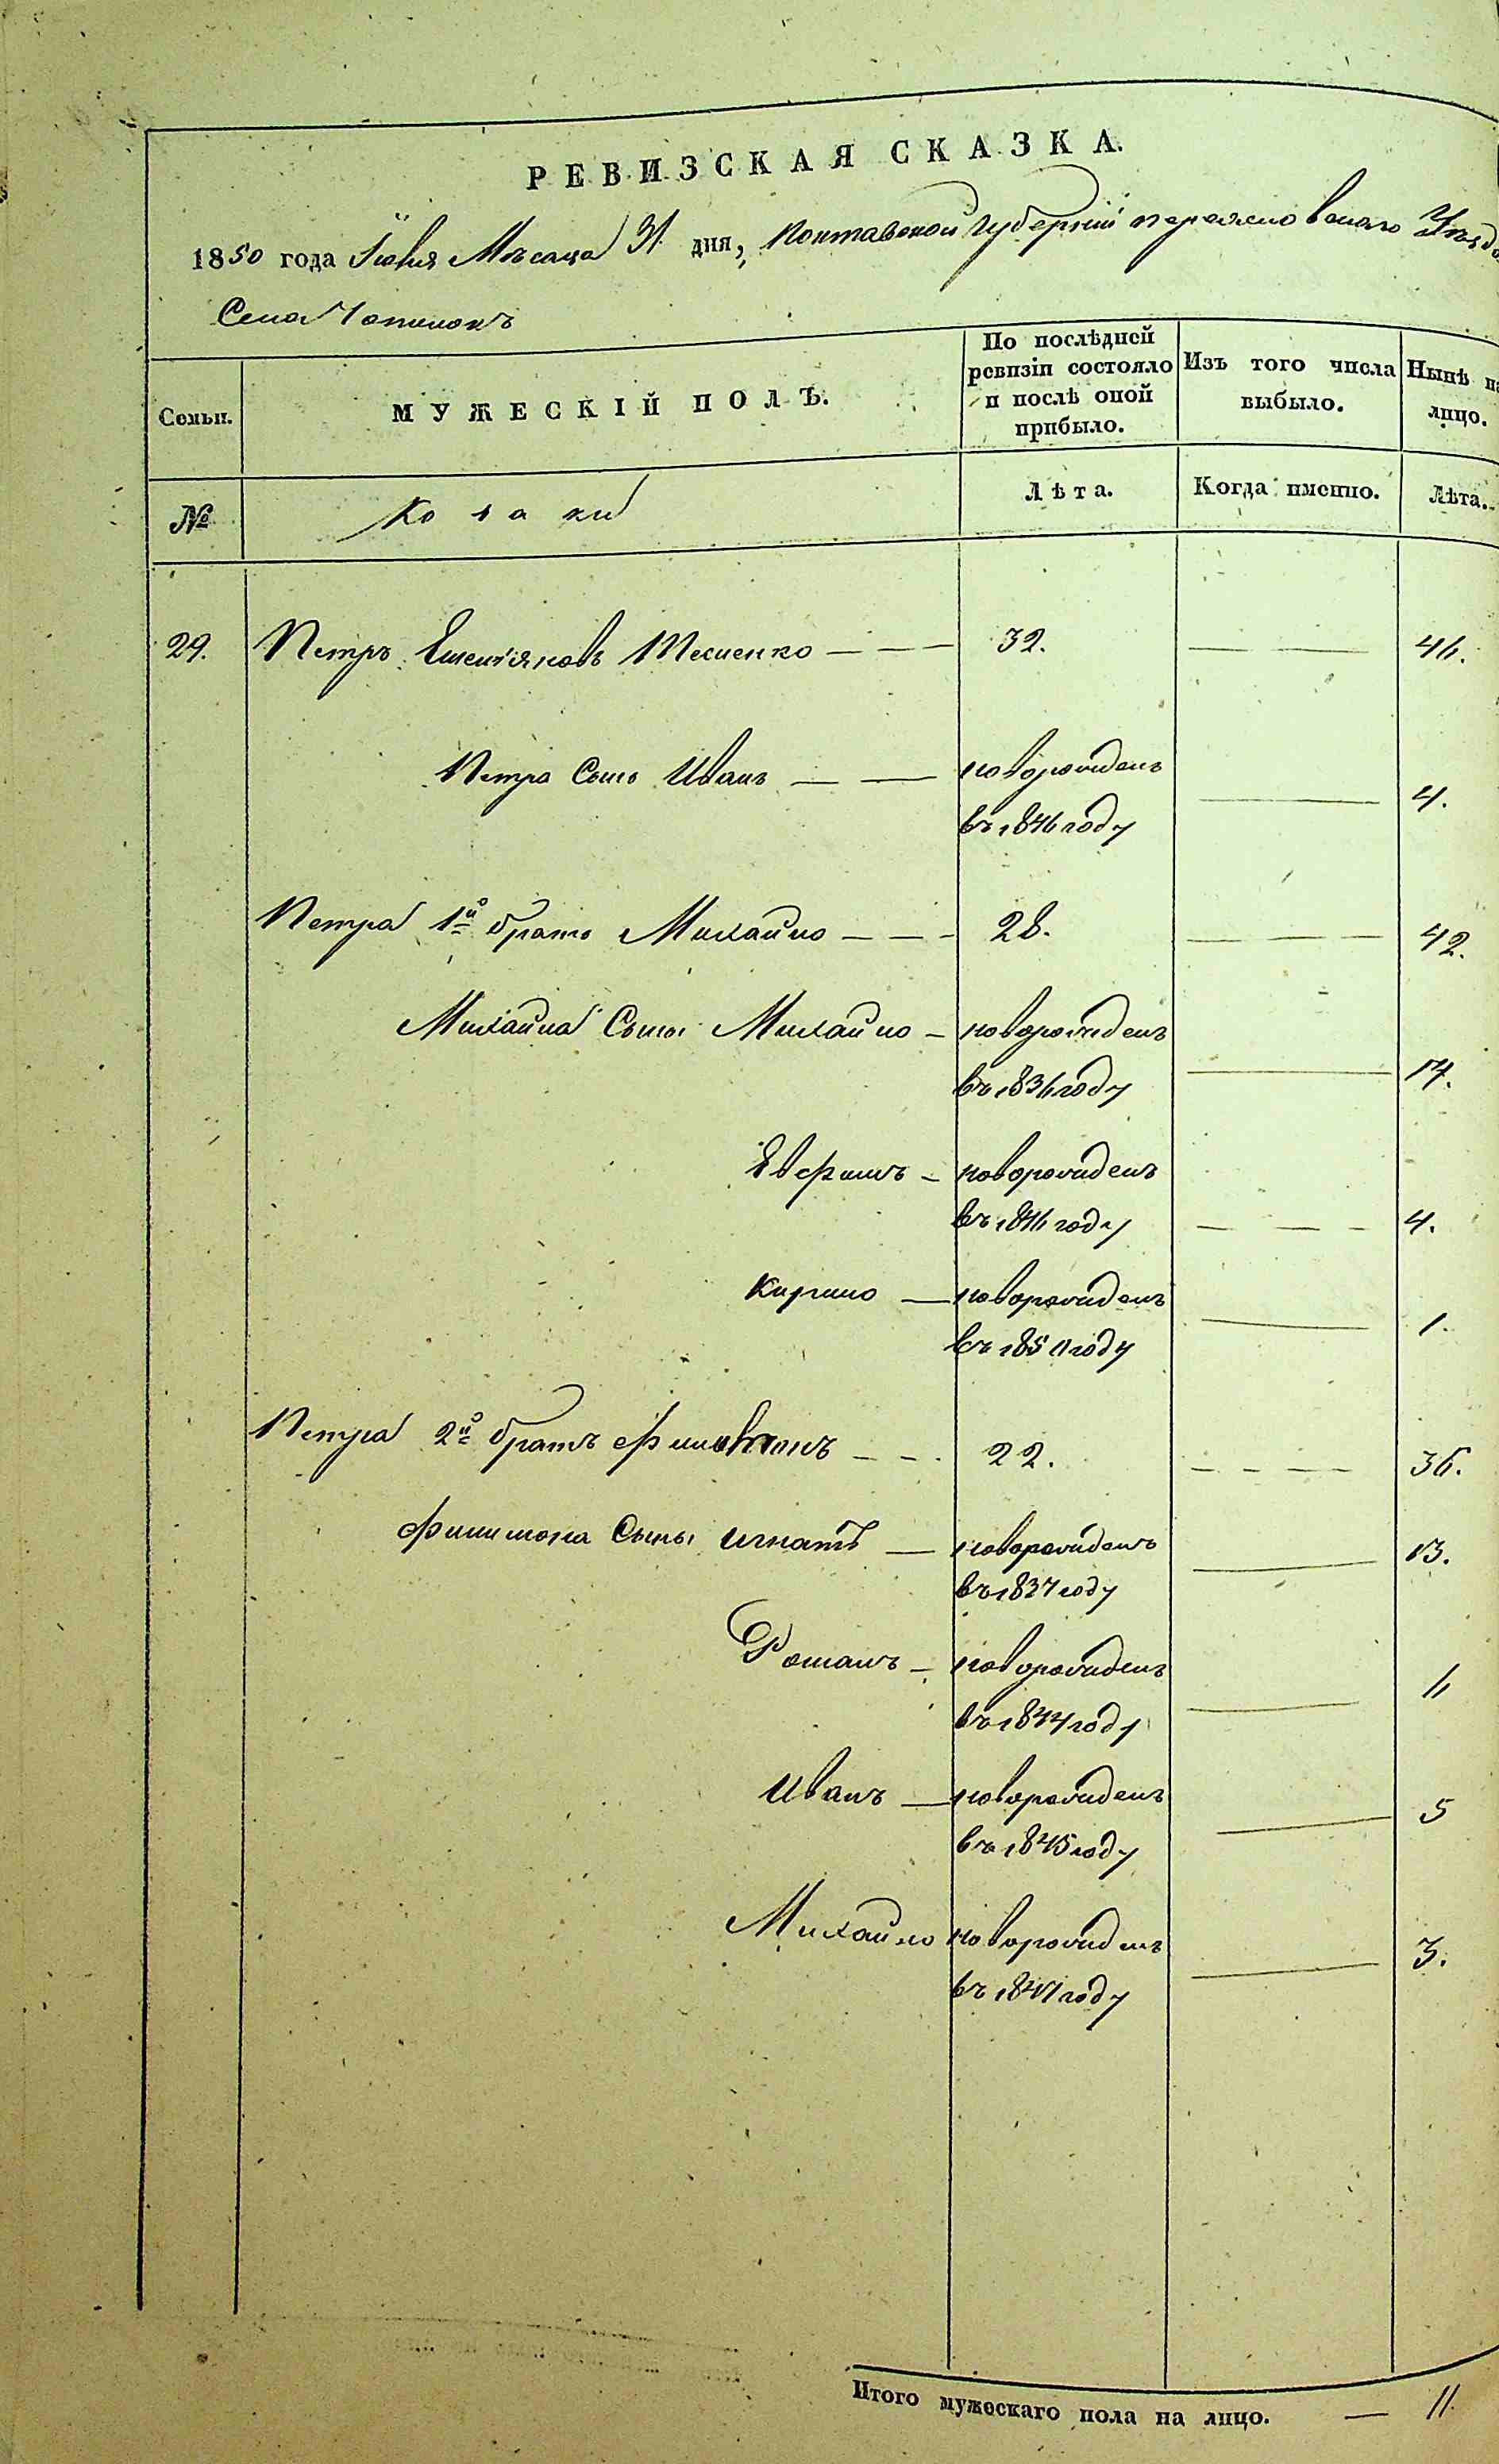 РЕВИЗСКАЯ СКАЗКА.
1850 года Іюля Мѣсаца 31 дня, Полтавской Губерніи переяславскаго Уѣзда
Села
Семьи.
МУЖЕСКІЙ ПОЛЪ.
По послѣдней ревизіи состояло и послѣ оной прибыло.
Изъ того числа выбыло.
Нынѣ на лицо.
№
Козаки
Лѣта.
Когда именно.
Лѣта.
29. Петръ Емельяновъ 32. 46.
Петра Сынъ Иванъ новорожденъ 4.
въ 1846 году
Петра 1й братъ Михайло 28. 42.
Михайла Сыны Михайло новорожденъ 14.
въ 1836 году
Евфимъ новорожденъ 4.
въ 1846 году
Кирило новорожденъ 1.
въ году
Петра 2й братъ Филимонъ 22. 36.
Филимона Сыны Игнатъ новорожденъ 13.
въ 1837 году
Романъ новорожденъ 6
въ 1844 году
Иванъ новорожденъ 5
въ 1845 году
Михайло новорожденъ 3.
въ 1847 году
Итого мужескаго пола на лицо. — 11.